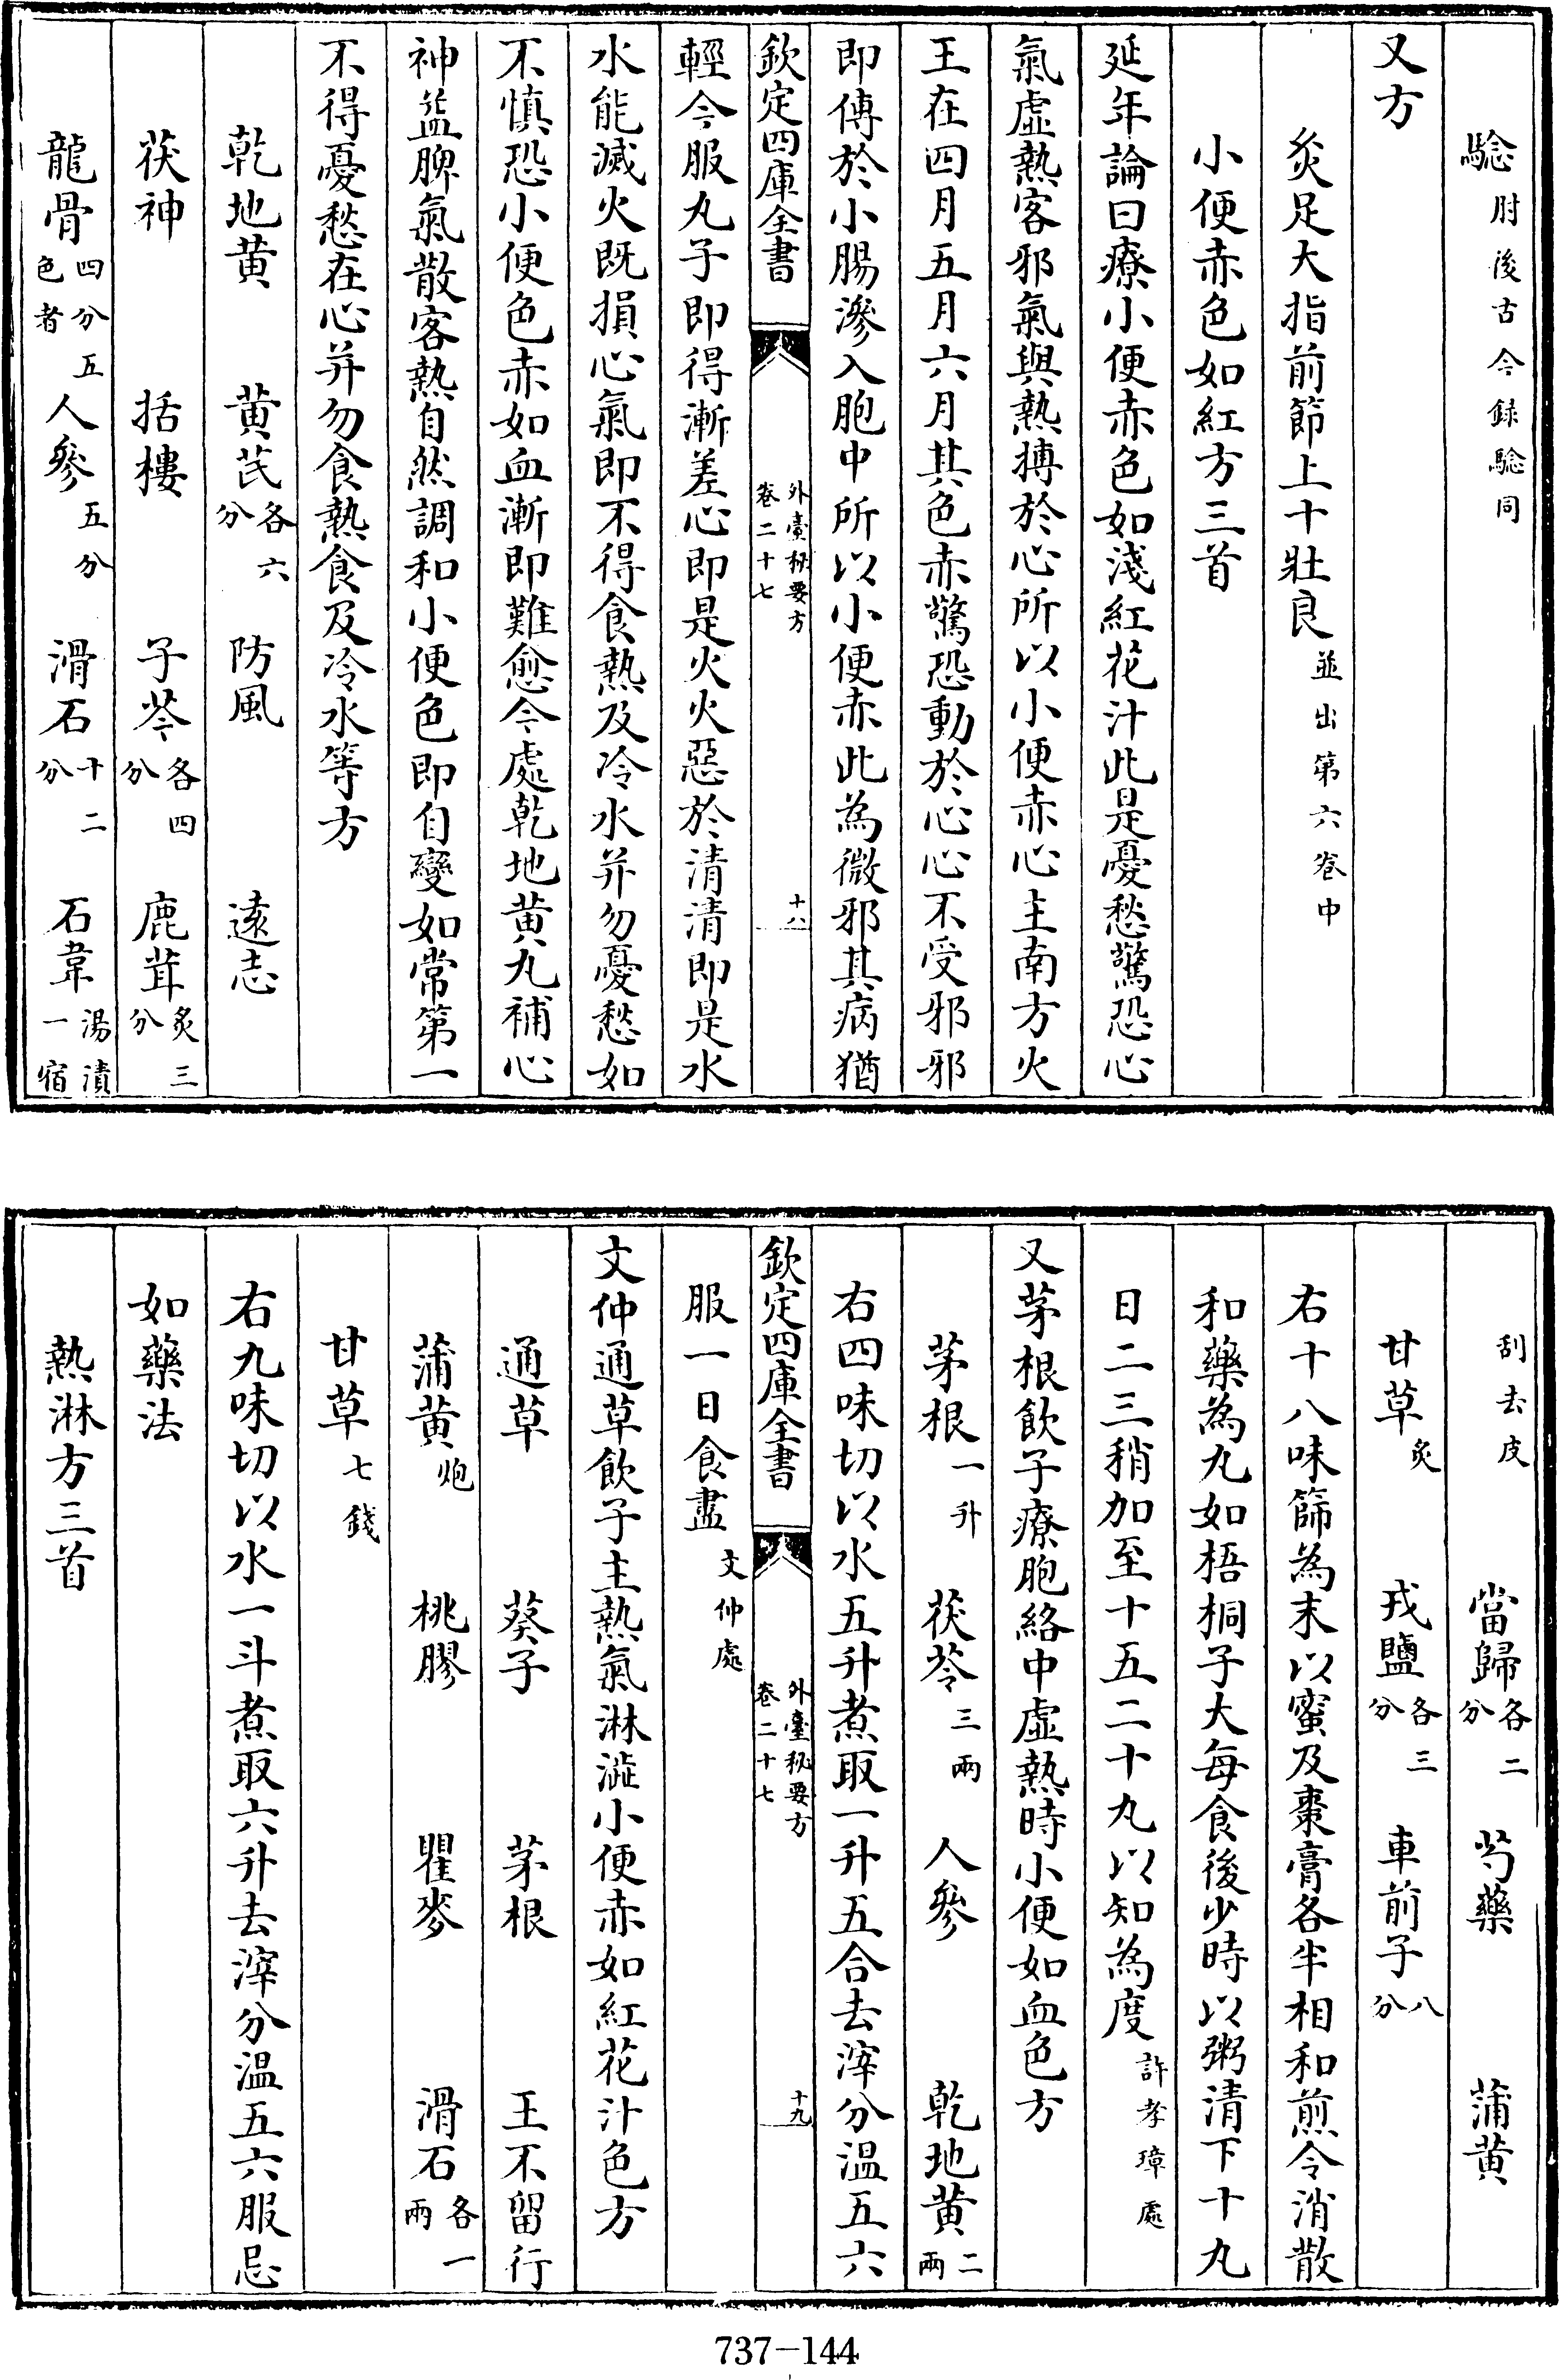 騐肘後古今録騐同
又方
炙足大指前節上十壯良並出第六卷中
小便赤色如紅方三首
延年論曰療小便赤色如淺紅花汁此是憂愁驚恐心
氣虛熱客邪氣與熱搏於心所以小便赤心主南方火
王在四月五月六月其色赤驚恐動於心心不受邪邪
即傳於小腸滲入胞中所以小便赤此為微邪其病猶
欽定四庫全書 外臺秘要方 卷二十七 十八
輕今服丸子即得漸差心即是火火惡於清清即是水
水能滅火既損心氣即不得食熱及冷水并勿憂愁如
不慎恐小便色赤如血漸即難愈今處乾地黃丸補心
神益脾氣散客熱自然調和小便色即自變如常第一
不得憂愁在心并勿食熱食及冷水等方
乾地黃 黃芪各六分 防風 遠志
茯神 括樓 子芩各四分 鹿茸炙三分
龍骨四分五色者 人參五分 滑石十二分 石韋湯漬一宿
刮去皮 當歸各二分 芍藥 蒲黃
甘草炙 戎鹽各三分 車前子八分
右十八味篩為末以蜜及棗膏各半相和煎令消散
和藥為丸如梧桐子大每食後少時以粥清下十丸
日二三稍加至十五二十丸以知為度許孝璋處
又茅根飲子療胞絡中虛熱時小便如血色方
茅根一升 茯苓三兩 人參 乾地黃二兩
右四味切以水五升煮取一升五合去滓分温五六
欽定四庫全書 外臺秘要方 卷二十七 十九
服一日食盡文仲處
文仲通草飲子主熱氣淋澁小便赤如紅花汁色方
通草 葵子 茅根 王不留行
蒲黃炮 桃膠 瞿麥 滑石各一兩
甘草七錢
右九味切以水一斗煮取六升去滓分温五六服忌
如藥法
熱淋方三首
737-144